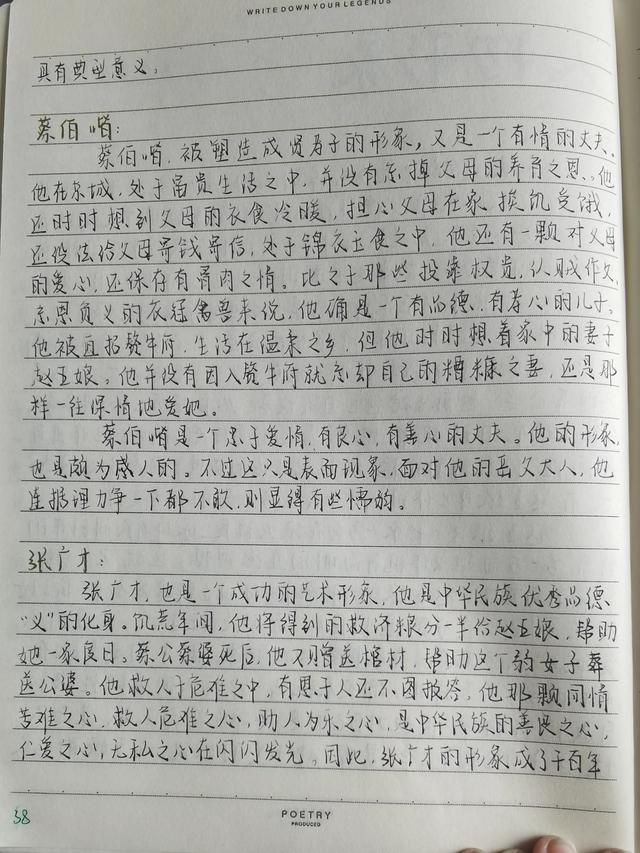 WRITE DOWN YOUR LEGENDS
具有典型意义。
蔡伯喈：
蔡伯喈，被塑造成贤孝子的形象，又是一个有情的丈夫。
他在京城，处于富贵生活之中，并没有忘掉父母的养育之恩。他
还时时想到父母的衣食冷暖，担心父母在家挨饥受饿，
还设法给父母寄钱寄信，处于锦衣玉食之中，他还有一颗对父母
的爱心，还保存有骨肉之情。比之于那些投靠权贵，认贼作父，
忘恩负义的衣冠禽兽来说，他确是一个有品德、有孝心的儿子。
他被直招赘牛府，生活在温柔之乡，但他时时想着家中的妻子
赵五娘。他并没有因入赘牛府就忘却自己的糟糠之妻，还是那
样一往深情地爱她。
蔡伯喈是一个忠于爱情，有良心，有善心的丈夫。他的形象，
也是颇为感人的。不过这只是表面现象，面对他的岳父大人，他
连据理力争一下都不敢，则显得有些懦弱。
张广才：
张广才，也是一个成功的艺术形象，他是中华民族优秀品德
“义”的化身。饥荒年间，他将得到的救济粮分一半给赵五娘，帮助
她一家度日。蔡公蔡婆死后，他又赠送棺材，帮助这个弱女子葬
送公婆。他救人于危难之中，有恩于人还不图报答，他那颗同情
苦难之心，救人危难之心，助人为乐之心，是中华民族的善良之心，
仁爱之心，无私之心在闪闪发光。因此，张广才的形象成了千百年
38
POETRY
PRODUCED